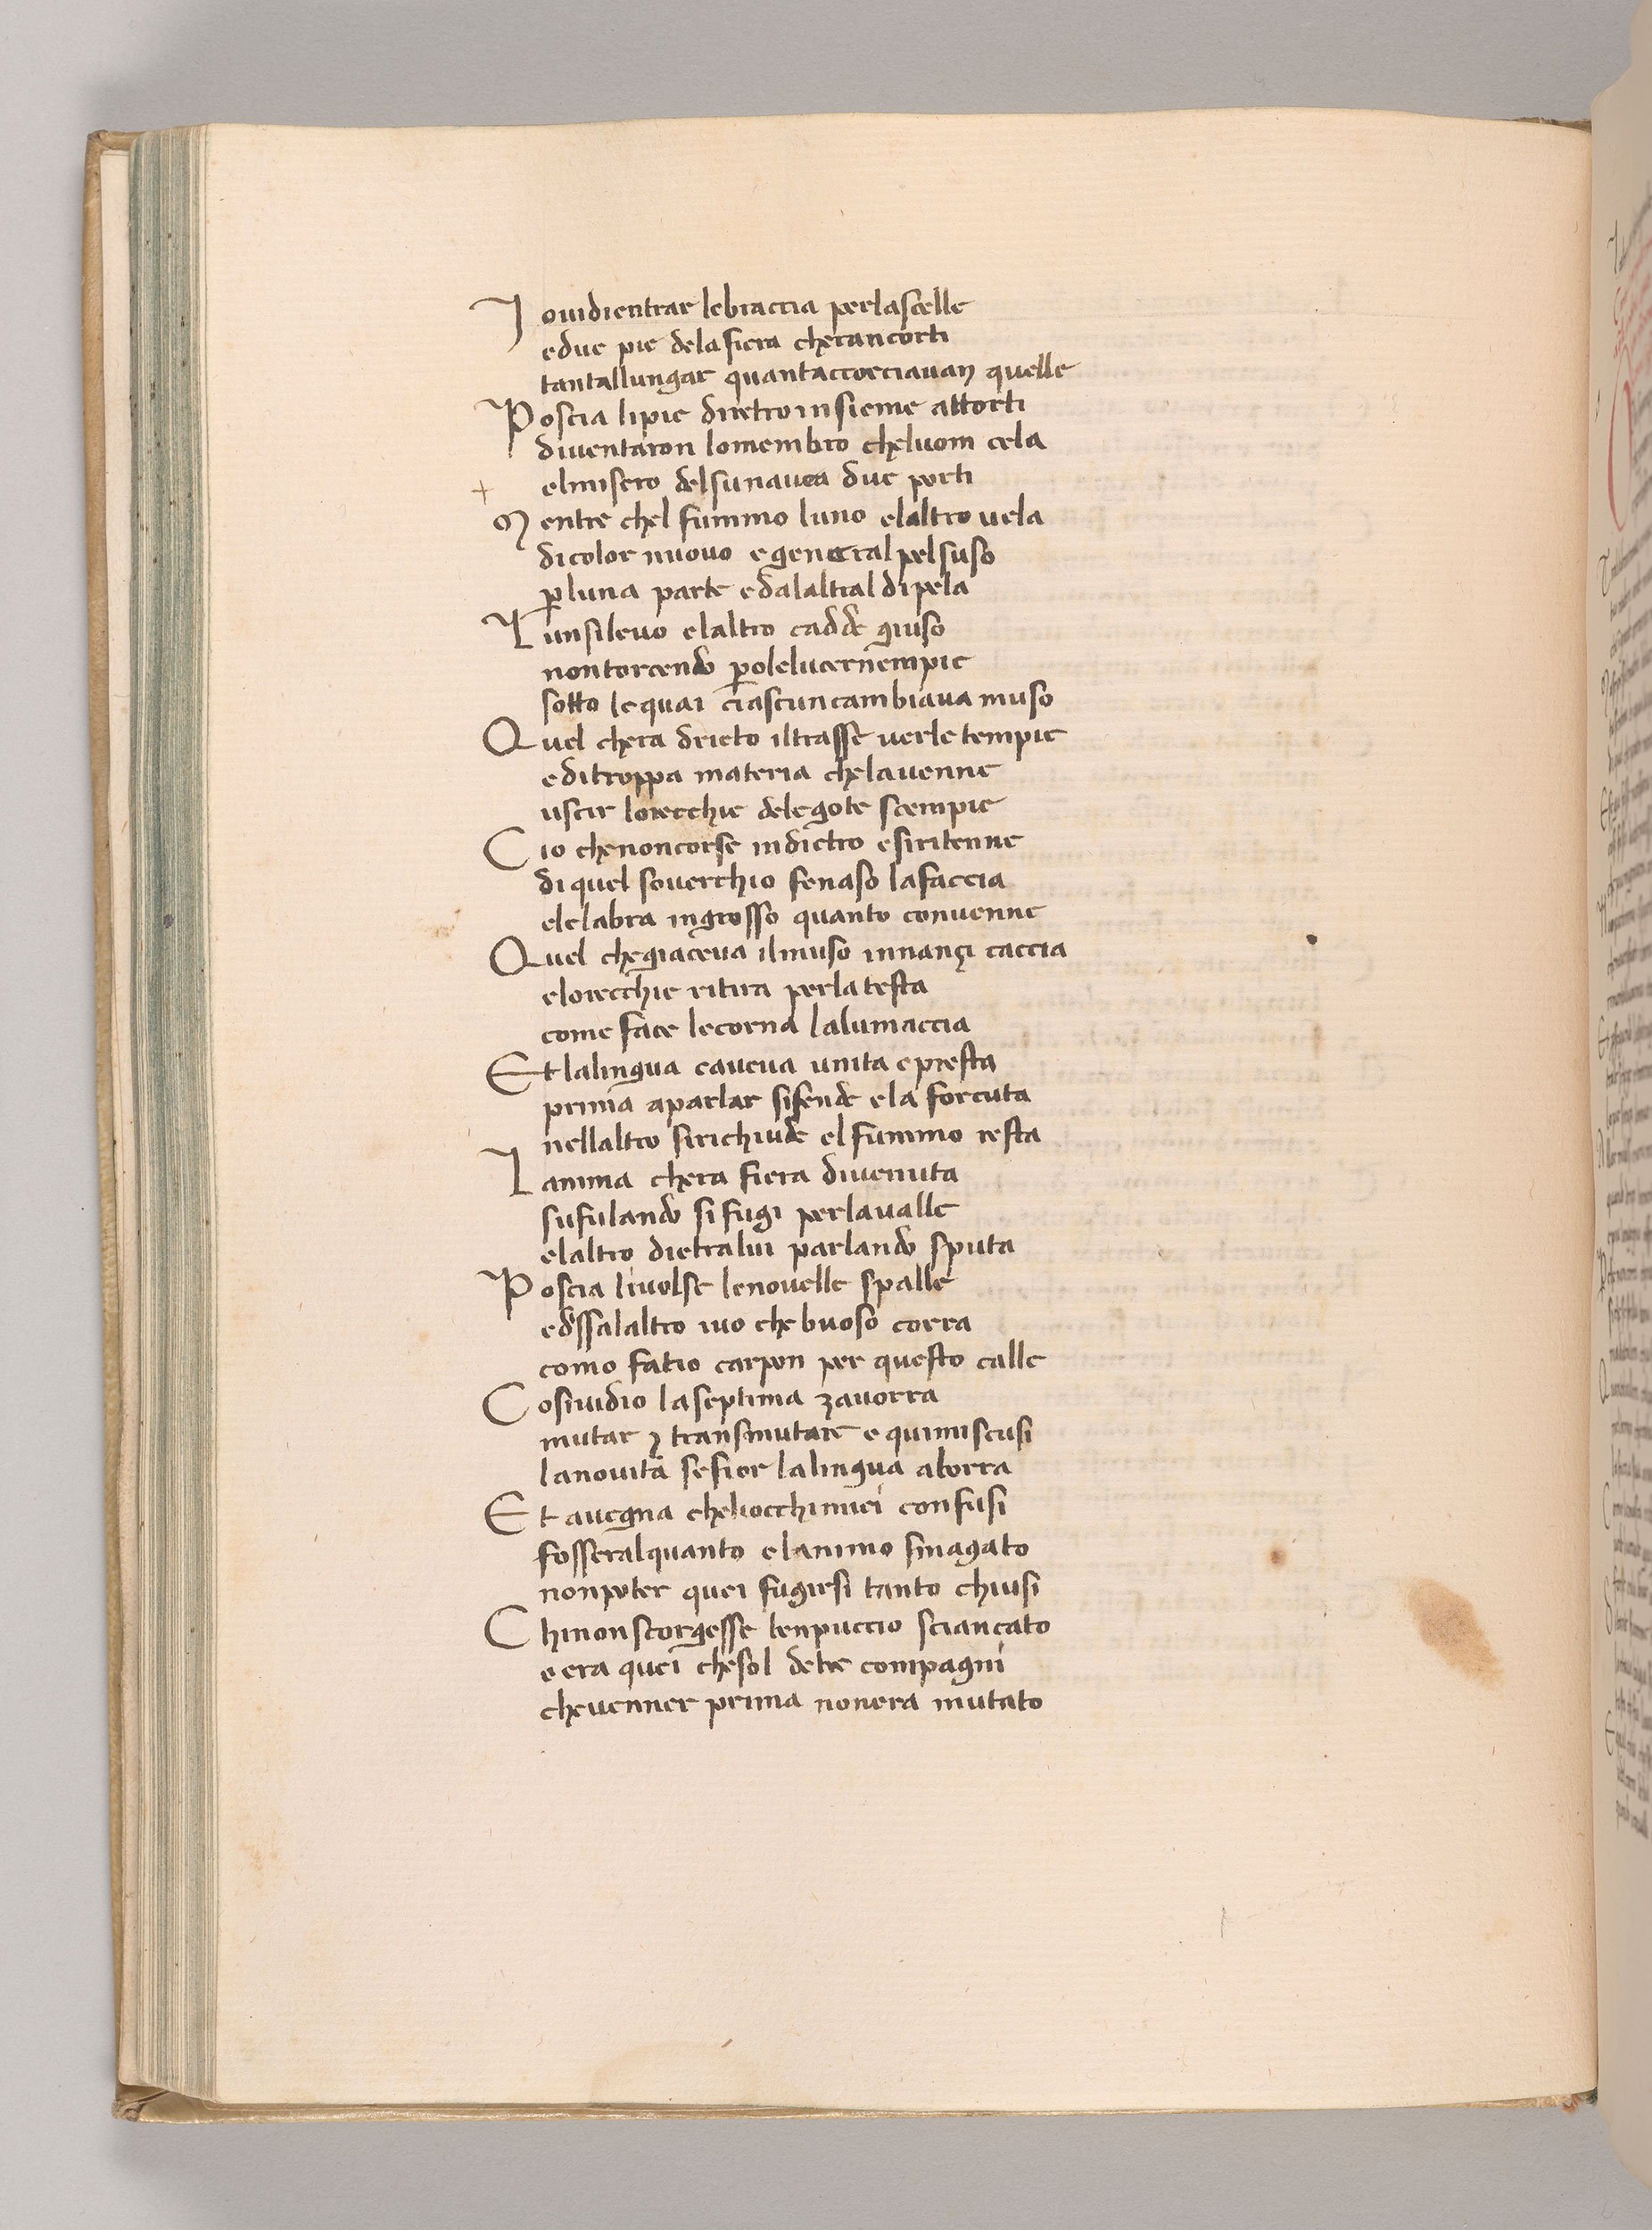 I ouidientrar lebraccia perlascelle
edue pie delafiera cherancorti
tantallungar quantaccorciauan quelle
Poscia lipie dirietroinsieme attorti
diuentaron lomembro cheluom cela
elmisero delsunauea due porti
Mentre chel fummo luno elaltro uela
dicolor nuouo egeneral pelsuso
perluna parte edalaltral dipela
Lunsileuo elaltro cadde giuso
nontorcendo perolelucernempie
sotto lequai ciascuncambiaua muso
Quel chera dricto iltrasse uerle tempie
editroppa materia chelauenne
uscir lorecchie delegote scempie
Cio chenoncorse indietro esiritenne
diquel souerchio fenaso lafaccia
elelabra ingrosso quanto conuenne
Quel chegiaceua ilmuso innançi caccia
elorecchie ritira perlatesta
come face lecorna lalumaccia
Et lalingua caueua unita epresta
prima aparlar sifende ela forcuta
nellaltro sirichiude elfummo resta
Lanima chera fiera diuenuta
sufulando sifugi perlaualle
elaltro dietralui parlando sputa
Poscia liuolse lenouelle spalle
edissalaltro iuo chebuoso corra
como fatio carpon per questo calle
Cosiuidio laseptima zauorra
mutar ⁊ transmutare equimiscusi
lanouita sefior lalingua aborra
Et auegna cheliocchimiei confusi
fosseralquanto elanimo smagato
nonpoter quei fugirsi tanto chiusi
Chinonscorgesse benpuccio sciancato
eera quei chesol detre compagni
cheuenner prima nonera mutato